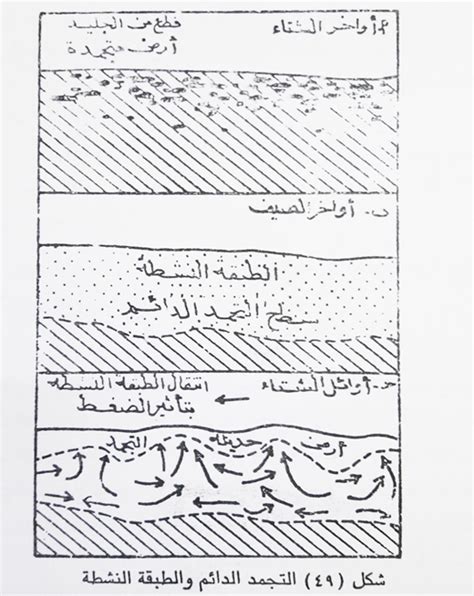 أ- أواخر الشتاء
قطع من الجليد
أرض متجمدة
ب- أواخر الصيف
الطبقة النشطة
سطح التجمد الدائم
ج- أوائل الشتاء
انتقال الطبقة النشطة
بتأثير الضغط
أرض حديثة التجمد
شكل (٤٩) التجمد الدائم والطبقة النشطة